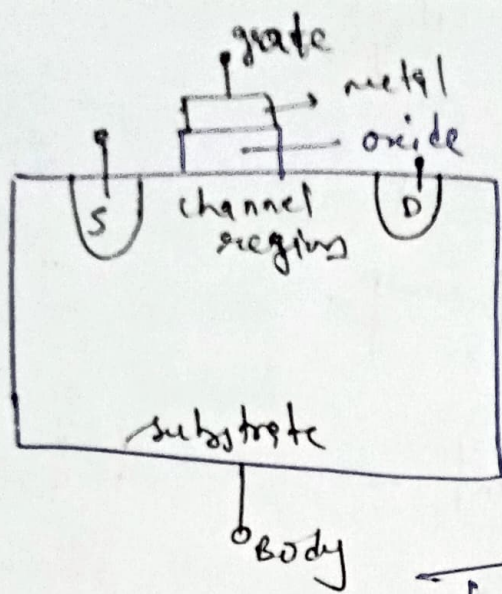 gate
metal
oxide
S
channel
region
D
substrate
Body